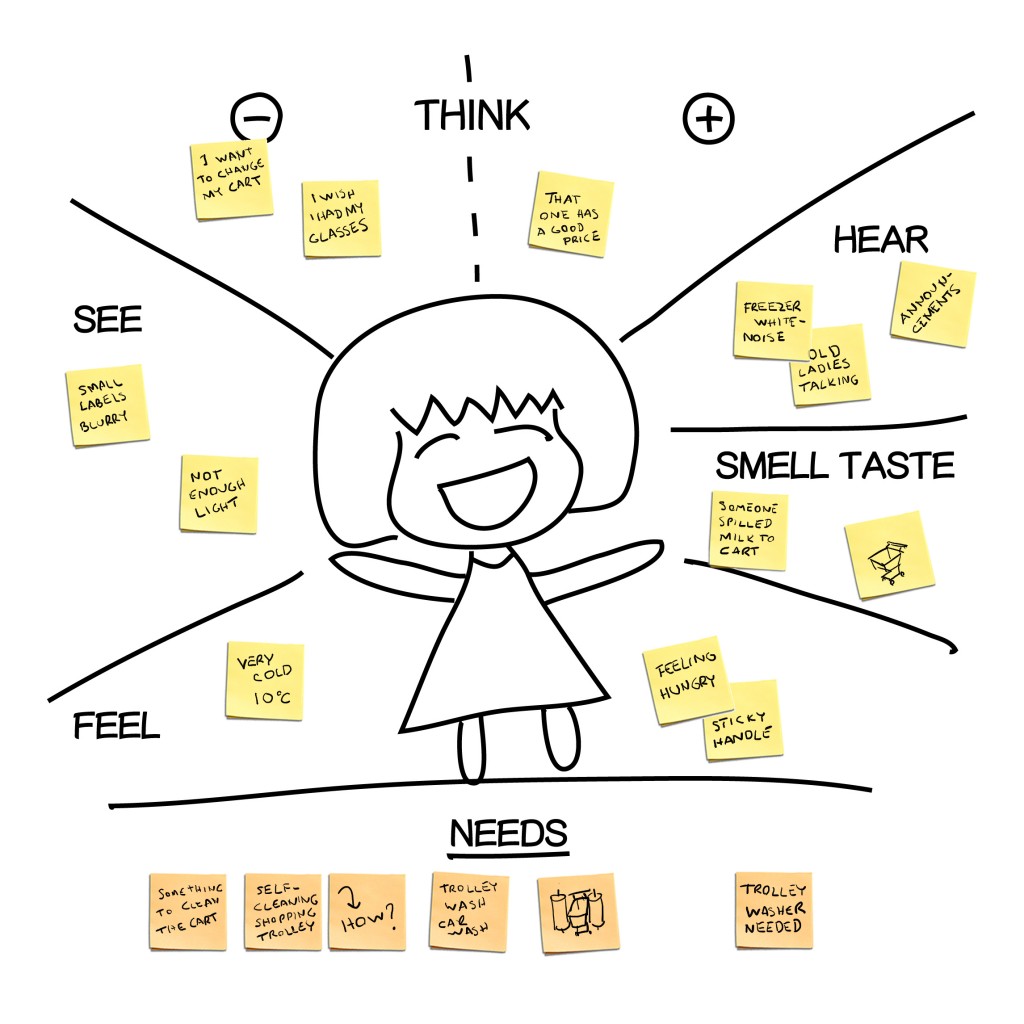 THINK
I WANT
TO CHANGE
MY CART
I WISH
I HAD MY
GLASSES
THAT
ONE HAS
A GOOD
PRICE
HEAR
FREEZER
WHITE-
NOISE
OLD
LADIES
TALKING
ANNOUN-
CEMENTS
SEE
SMALL
LABELS
BLURRY
NOT
ENOUGH
LIGHT
SMELL TASTE
SOMEONE
SPILLED
MILK TO
CART
FEEL
VERY
COLD
10°C
FEELING
HUNGRY
STICKY
HANDLE
NEEDS
SOMETHING
TO CLEAN
THE CART
SELF-
CLEANING
SHOPPING
TROLLEY
HOW?
TROLLEY
WASH
CAR
WASH
TROLLEY
WASHER
NEEDED